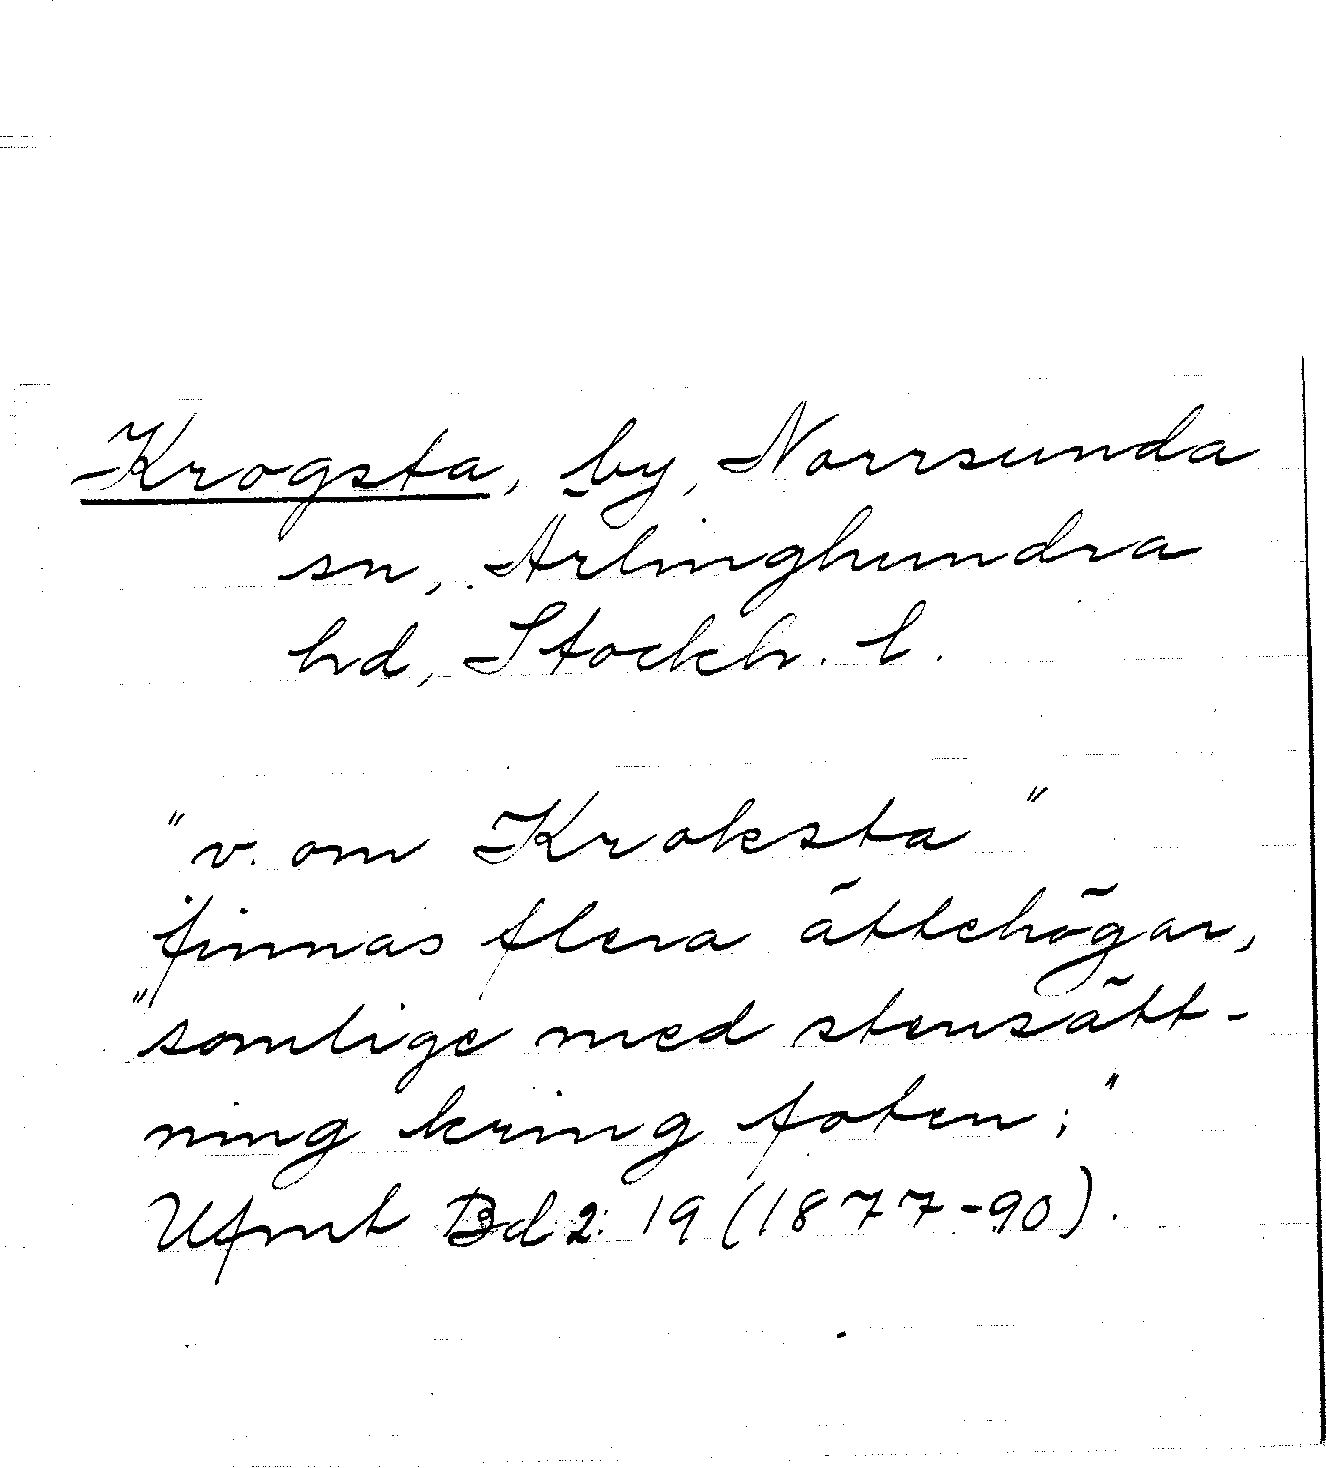 Krogsta, by, Norrsunda
sn, Ärlinghundra
hd, Stockh. l.
"v. om Kroksta"
finnas flera ättehögar,
"somlige med stensätt-
ning kring foten;"
Ufmt Bd 2: 19 (1877-90).